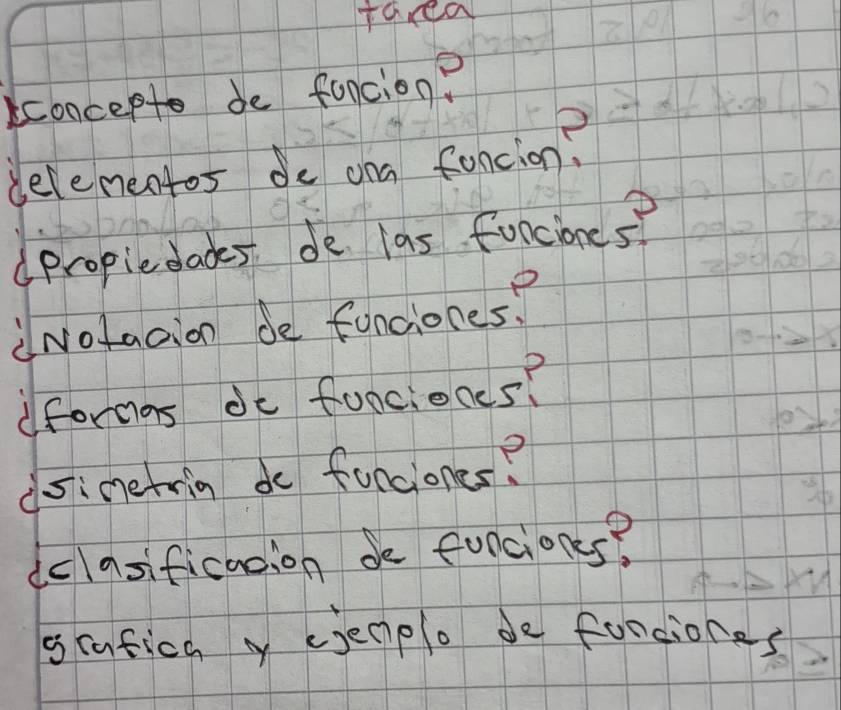 tarea
¿concepto de funcion?
¿elementos de una funcion?
¿propiedades de las funciones?
¿Notacion de funciones?
¿formas de funciones?
¿simetria de funciones?
¿clasificacion de funciones?
grafica y ejemplo de funciones